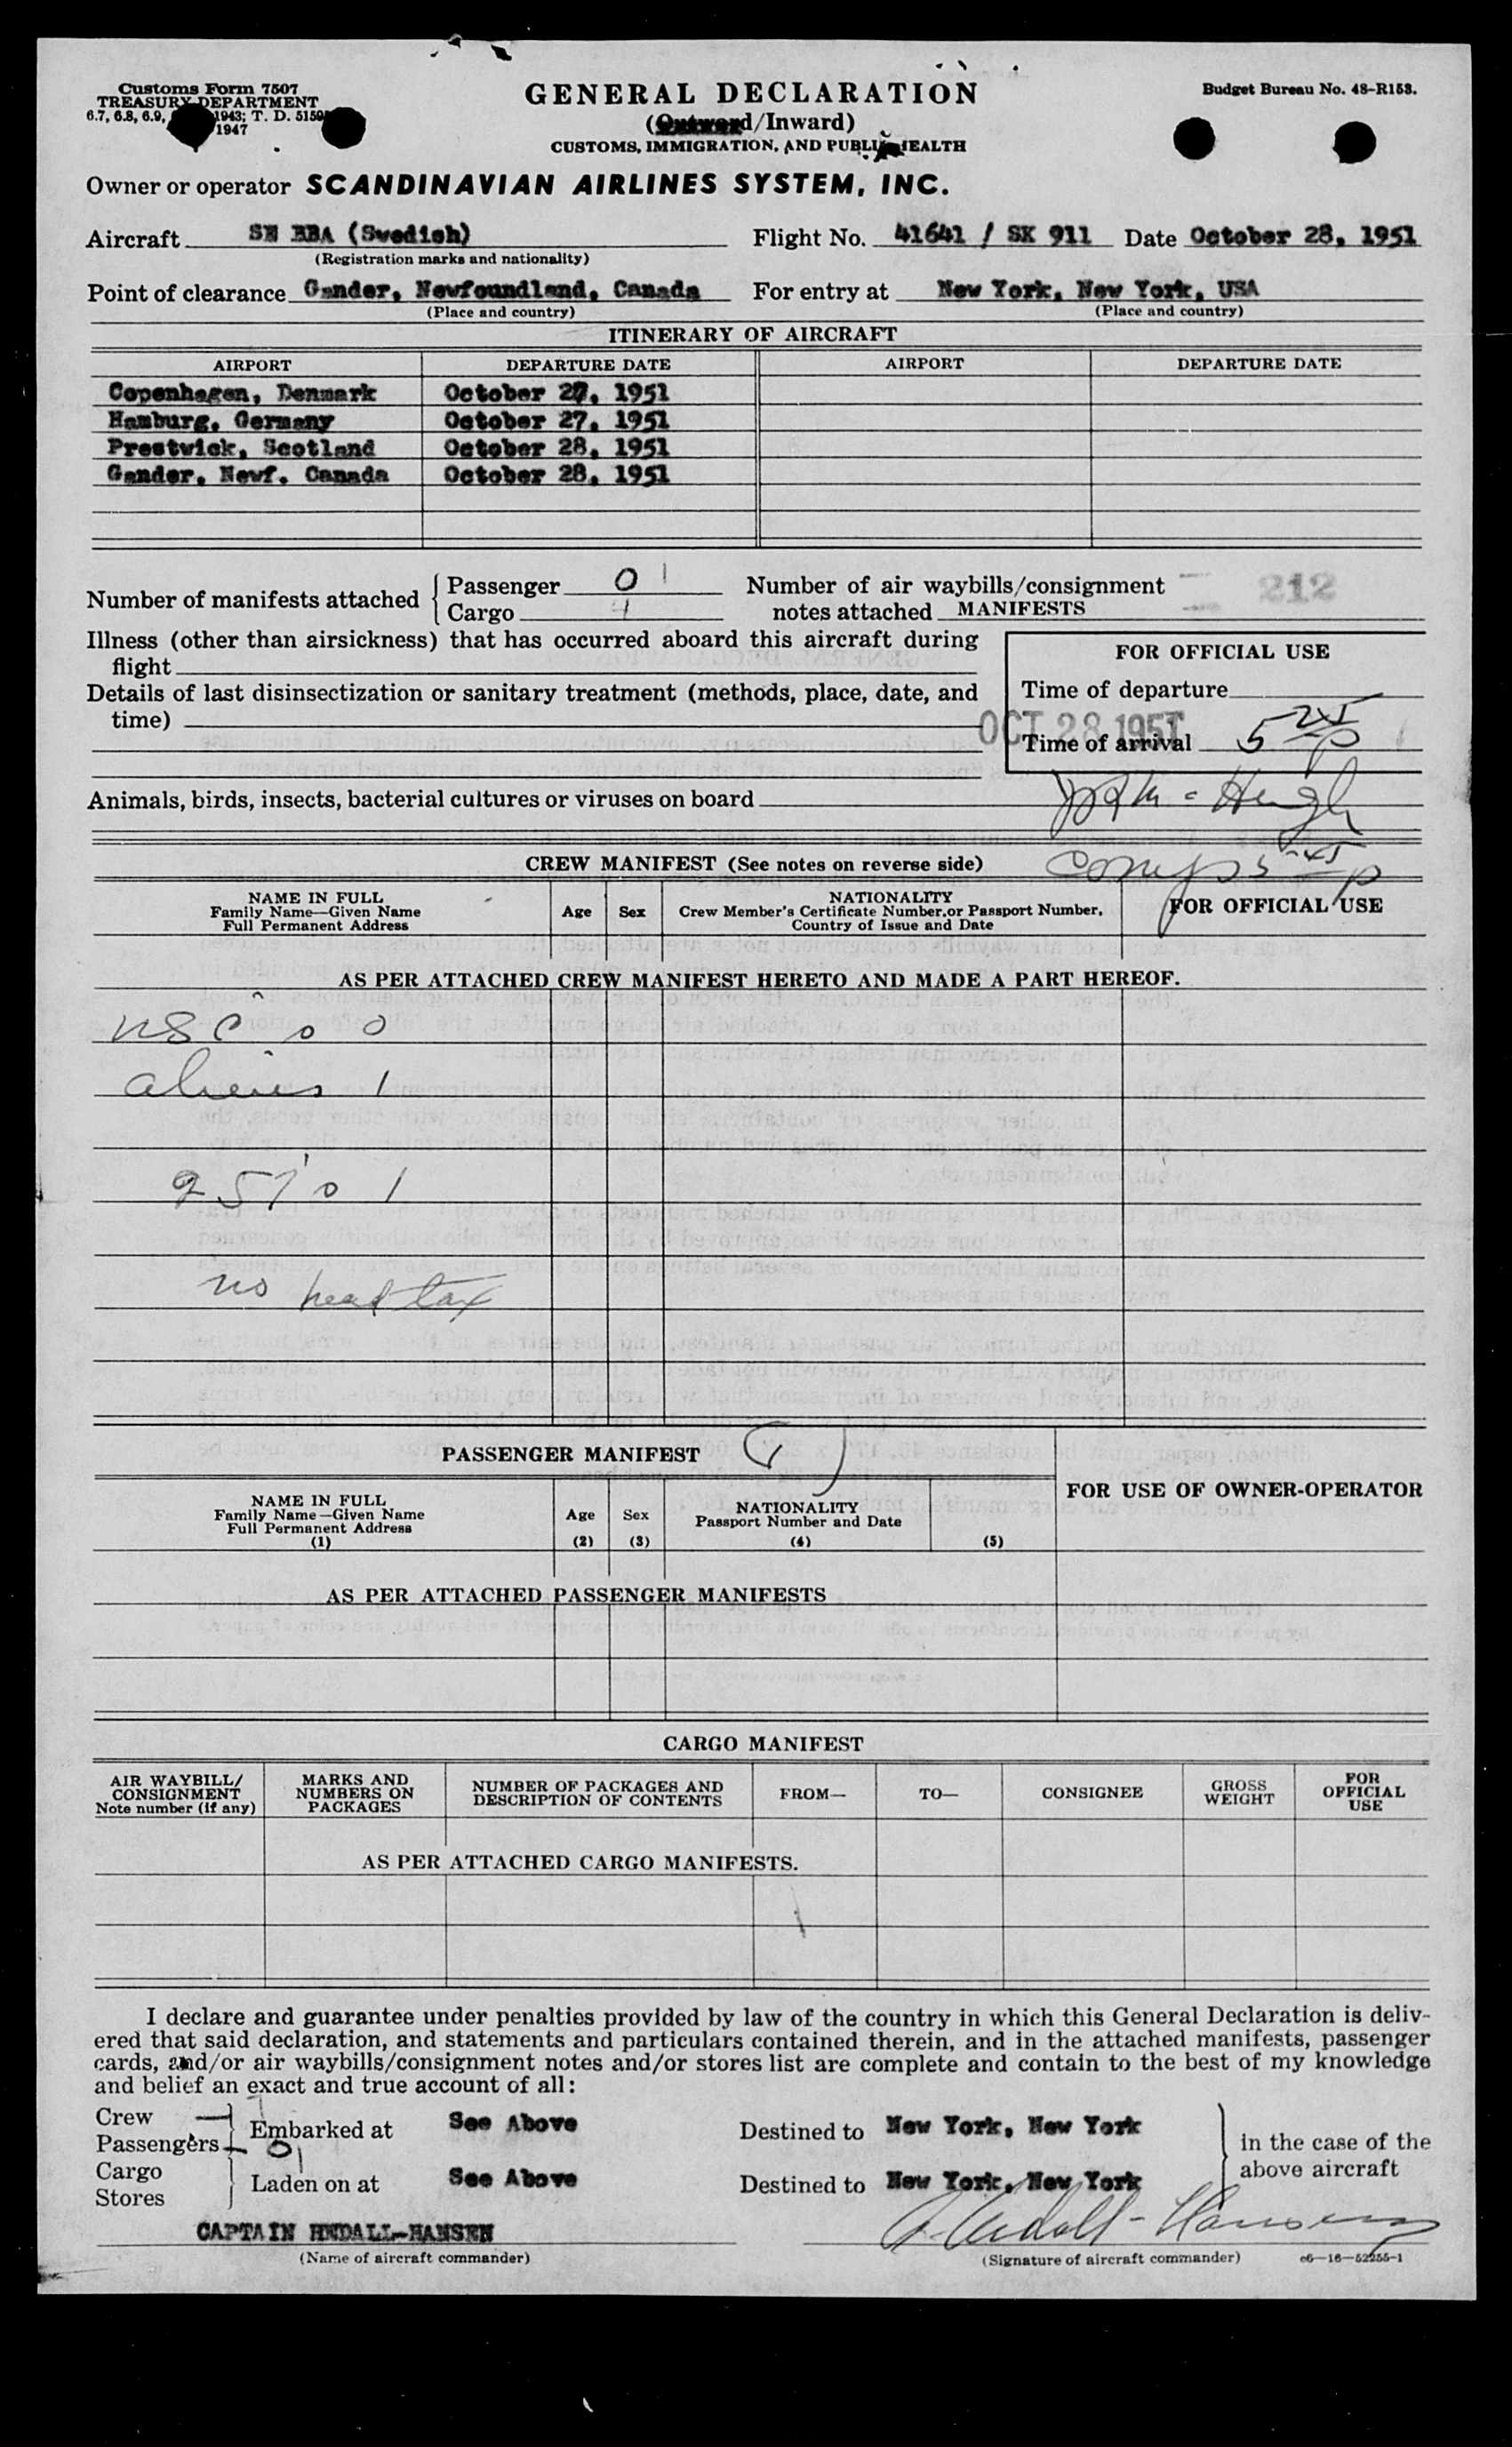 Customs Form 7507
TREASURY DEPARTMENT
6.7, 6.8, 6.9, 1943; T. D. 5159
1947
GENERAL DECLARATION
(Outward/Inward)
CUSTOMS, IMMIGRATION, AND PUBLIC HEALTH
Budget Bureau No. 48-R153.
Owner or operator SCANDINAVIAN AIRLINES SYSTEM, INC.
Aircraft SE BBA (Swedish) Flight No. 41641 / SK 911 Date October 28, 1951
(Registration marks and nationality)
Point of clearance Gander, Newfoundland, Canada For entry at New York, New York, USA
(Place and country) (Place and country)
ITINERARY OF AIRCRAFT
AIRPORT DEPARTURE DATE AIRPORT DEPARTURE DATE
Copenhagen, Denmark October 27, 1951
Hamburg, Germany October 27, 1951
Prestwick, Scotland October 28, 1951
Gander, Newf. Canada October 28, 1951
Number of manifests attached { Passenger 0 1
Cargo 4
Number of air waybills/consignment
notes attached MANIFESTS 212
Illness (other than airsickness) that has occurred aboard this aircraft during
flight
Details of last disinsectization or sanitary treatment (methods, place, date, and
time)
FOR OFFICIAL USE
Time of departure
OCT 28 1951
Time of arrival 5 25 p
Animals, birds, insects, bacterial cultures or viruses on board
CREW MANIFEST (See notes on reverse side)
comp 5 45 p
NAME IN FULL
Family Name—Given Name
Full Permanent Address
Age Sex
NATIONALITY
Crew Member's Certificate Number or Passport Number,
Country of Issue and Date
FOR OFFICIAL USE
AS PER ATTACHED CREW MANIFEST HERETO AND MADE A PART HEREOF.
USC 0 0
aliens 1
no head tax
PASSENGER MANIFEST
NAME IN FULL
Family Name—Given Name
Full Permanent Address
(1)
Age
(2)
Sex
(3)
NATIONALITY
Passport Number and Date
(4)
(5)
FOR USE OF OWNER-OPERATOR
AS PER ATTACHED PASSENGER MANIFESTS
CARGO MANIFEST
AIR WAYBILL/
CONSIGNMENT
Note number (if any)
MARKS AND
NUMBERS ON
PACKAGES
NUMBER OF PACKAGES AND
DESCRIPTION OF CONTENTS
FROM—
TO—
CONSIGNEE
GROSS
WEIGHT
FOR
OFFICIAL
USE
AS PER ATTACHED CARGO MANIFESTS.
I declare and guarantee under penalties provided by law of the country in which this General Declaration is deliv-
ered that said declaration, and statements and particulars contained therein, and in the attached manifests, passenger
cards, and/or air waybills/consignment notes and/or stores list are complete and contain to the best of my knowledge
and belief an exact and true account of all:
Crew
Passengers
Embarked at See Above Destined to New York, New York
Cargo
Stores
Laden on at See Above Destined to New York, New York
in the case of the
above aircraft
CAPTAIN HEDALL-HANSEN
(Name of aircraft commander)
Hedall-Hansen
(Signature of aircraft commander) c6—16—52255-1